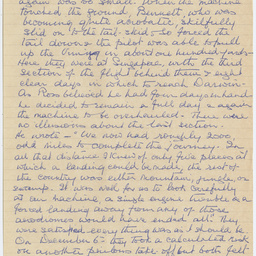 again was so small. When the machine
touched the ground, Bennett who was
becoming quite acrobatic, skilfully
slid on to the tail-skid. So forced the
tail down & the pilot was able to pull
up the Vimy in about one hundred yards.
Here they were at Singapore, with the third
section of the flight behind them & eight
clear days in which to reach Darwin.
As Ross believed he had four days in hand
he decided to remain a full day & again
the machine to be overhauled. There were
no illusions about the last section.
He wrote - "We now had roughly 2000
odd miles to complete the journey. In
all that distance I knew of only five places at
which a landing could be made, the rest of
the country was either mountain, jungle, or
swamp. It was well for us to look carefully
at our machine, a single engine trouble & a
forced landing away from any of those
aerodromes would have ended all." They
were satisfied everything was as it should be
On December 6th they took a calculated risk
on another perilous take off but both felt